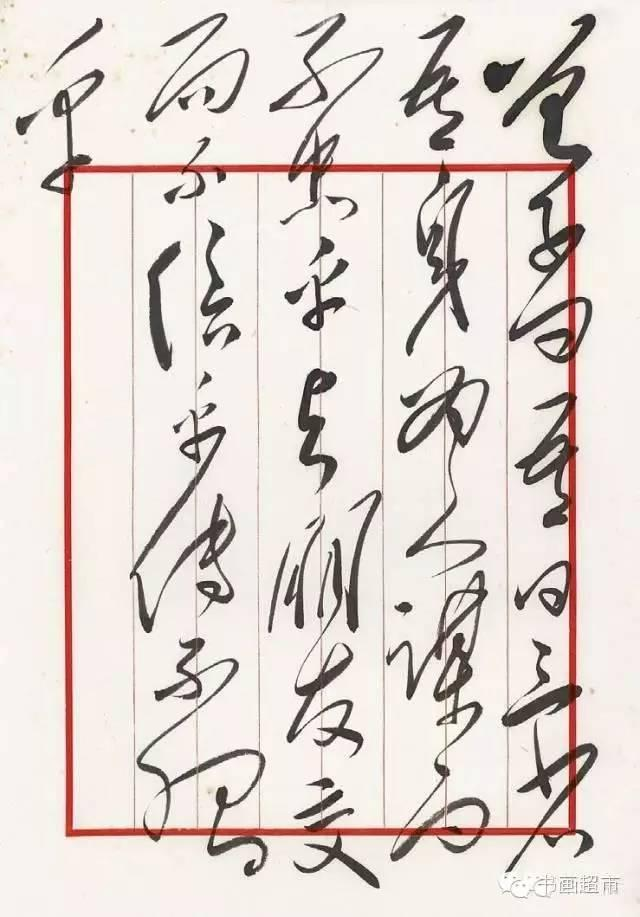 曾子曰吾日三省
吾身为人谋而
不忠乎与朋友交
而不信乎传不习
乎
书画超市